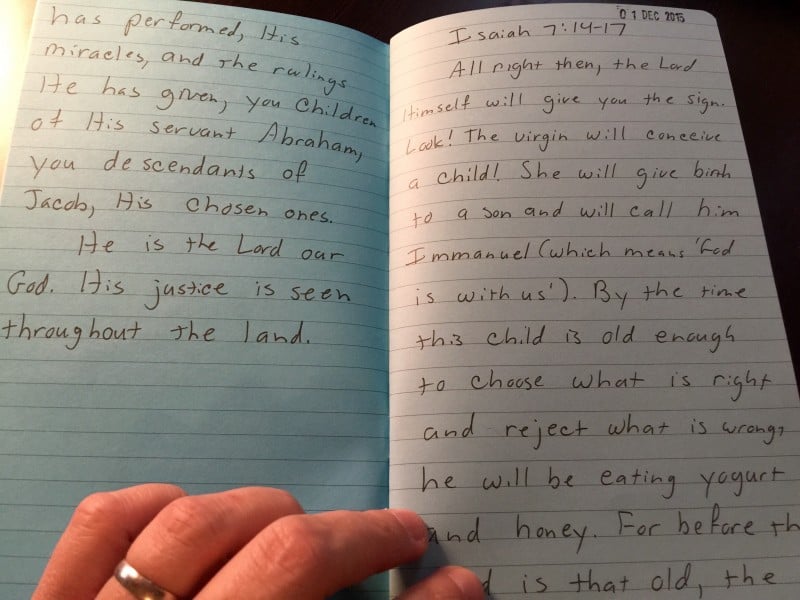 has performed, His
miracles, and the rulings
He has given, you Children
of His servant Abraham,
you descendants of
Jacob, His chosen ones.
He is the Lord our
God. His justice is seen
throughout the land.
01 DEC 2015
Isaiah 7:14-17
All right then, the Lord
Himself will give you the sign.
Look! The virgin will conceive
a child! She will give birth
to a son and will call him
Immanuel (which means 'God
is with us'). By the time
this child is old enough
to choose what is right
and reject what is wrong,
he will be eating yogurt
and honey. For before th
d is that old, the